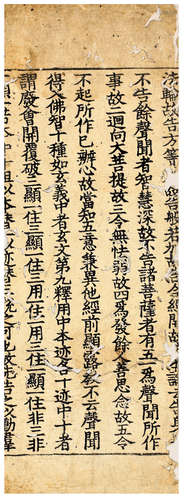 法輪故告方等
不告餘聲聞者智慧深故不告諸菩薩者有五一為聲聞所作
事故二迴向大菩提故三令無怯弱故四為發餘人善思念故五令
不起所作已辦心故當知五意兼異他經前顯露教不云聲聞
得入佛智十種如玄義中者玄文第九釋用中本迹各十迹中十者
謂廢會開覆破三顯一住三顯一住三用一住一用三住一顯一住非三非